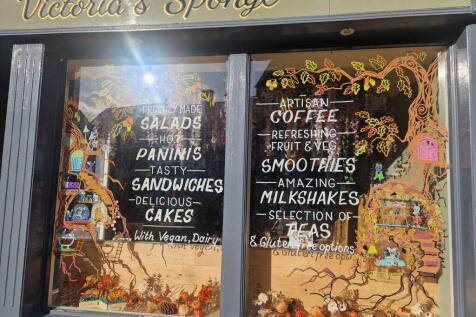 Victoria's Sponge
FRESHLY MADE
SALADS
HOT
PANINIS
TASTY
SANDWICHES
DELICIOUS
CAKES
With Vegan, Dairy
ARTISAN
COFFEE
REFRESHING
FRUIT & VEG
SMOOTHIES
AMAZING
MILKSHAKES
SELECTION OF
TEAS
& Gluten free options